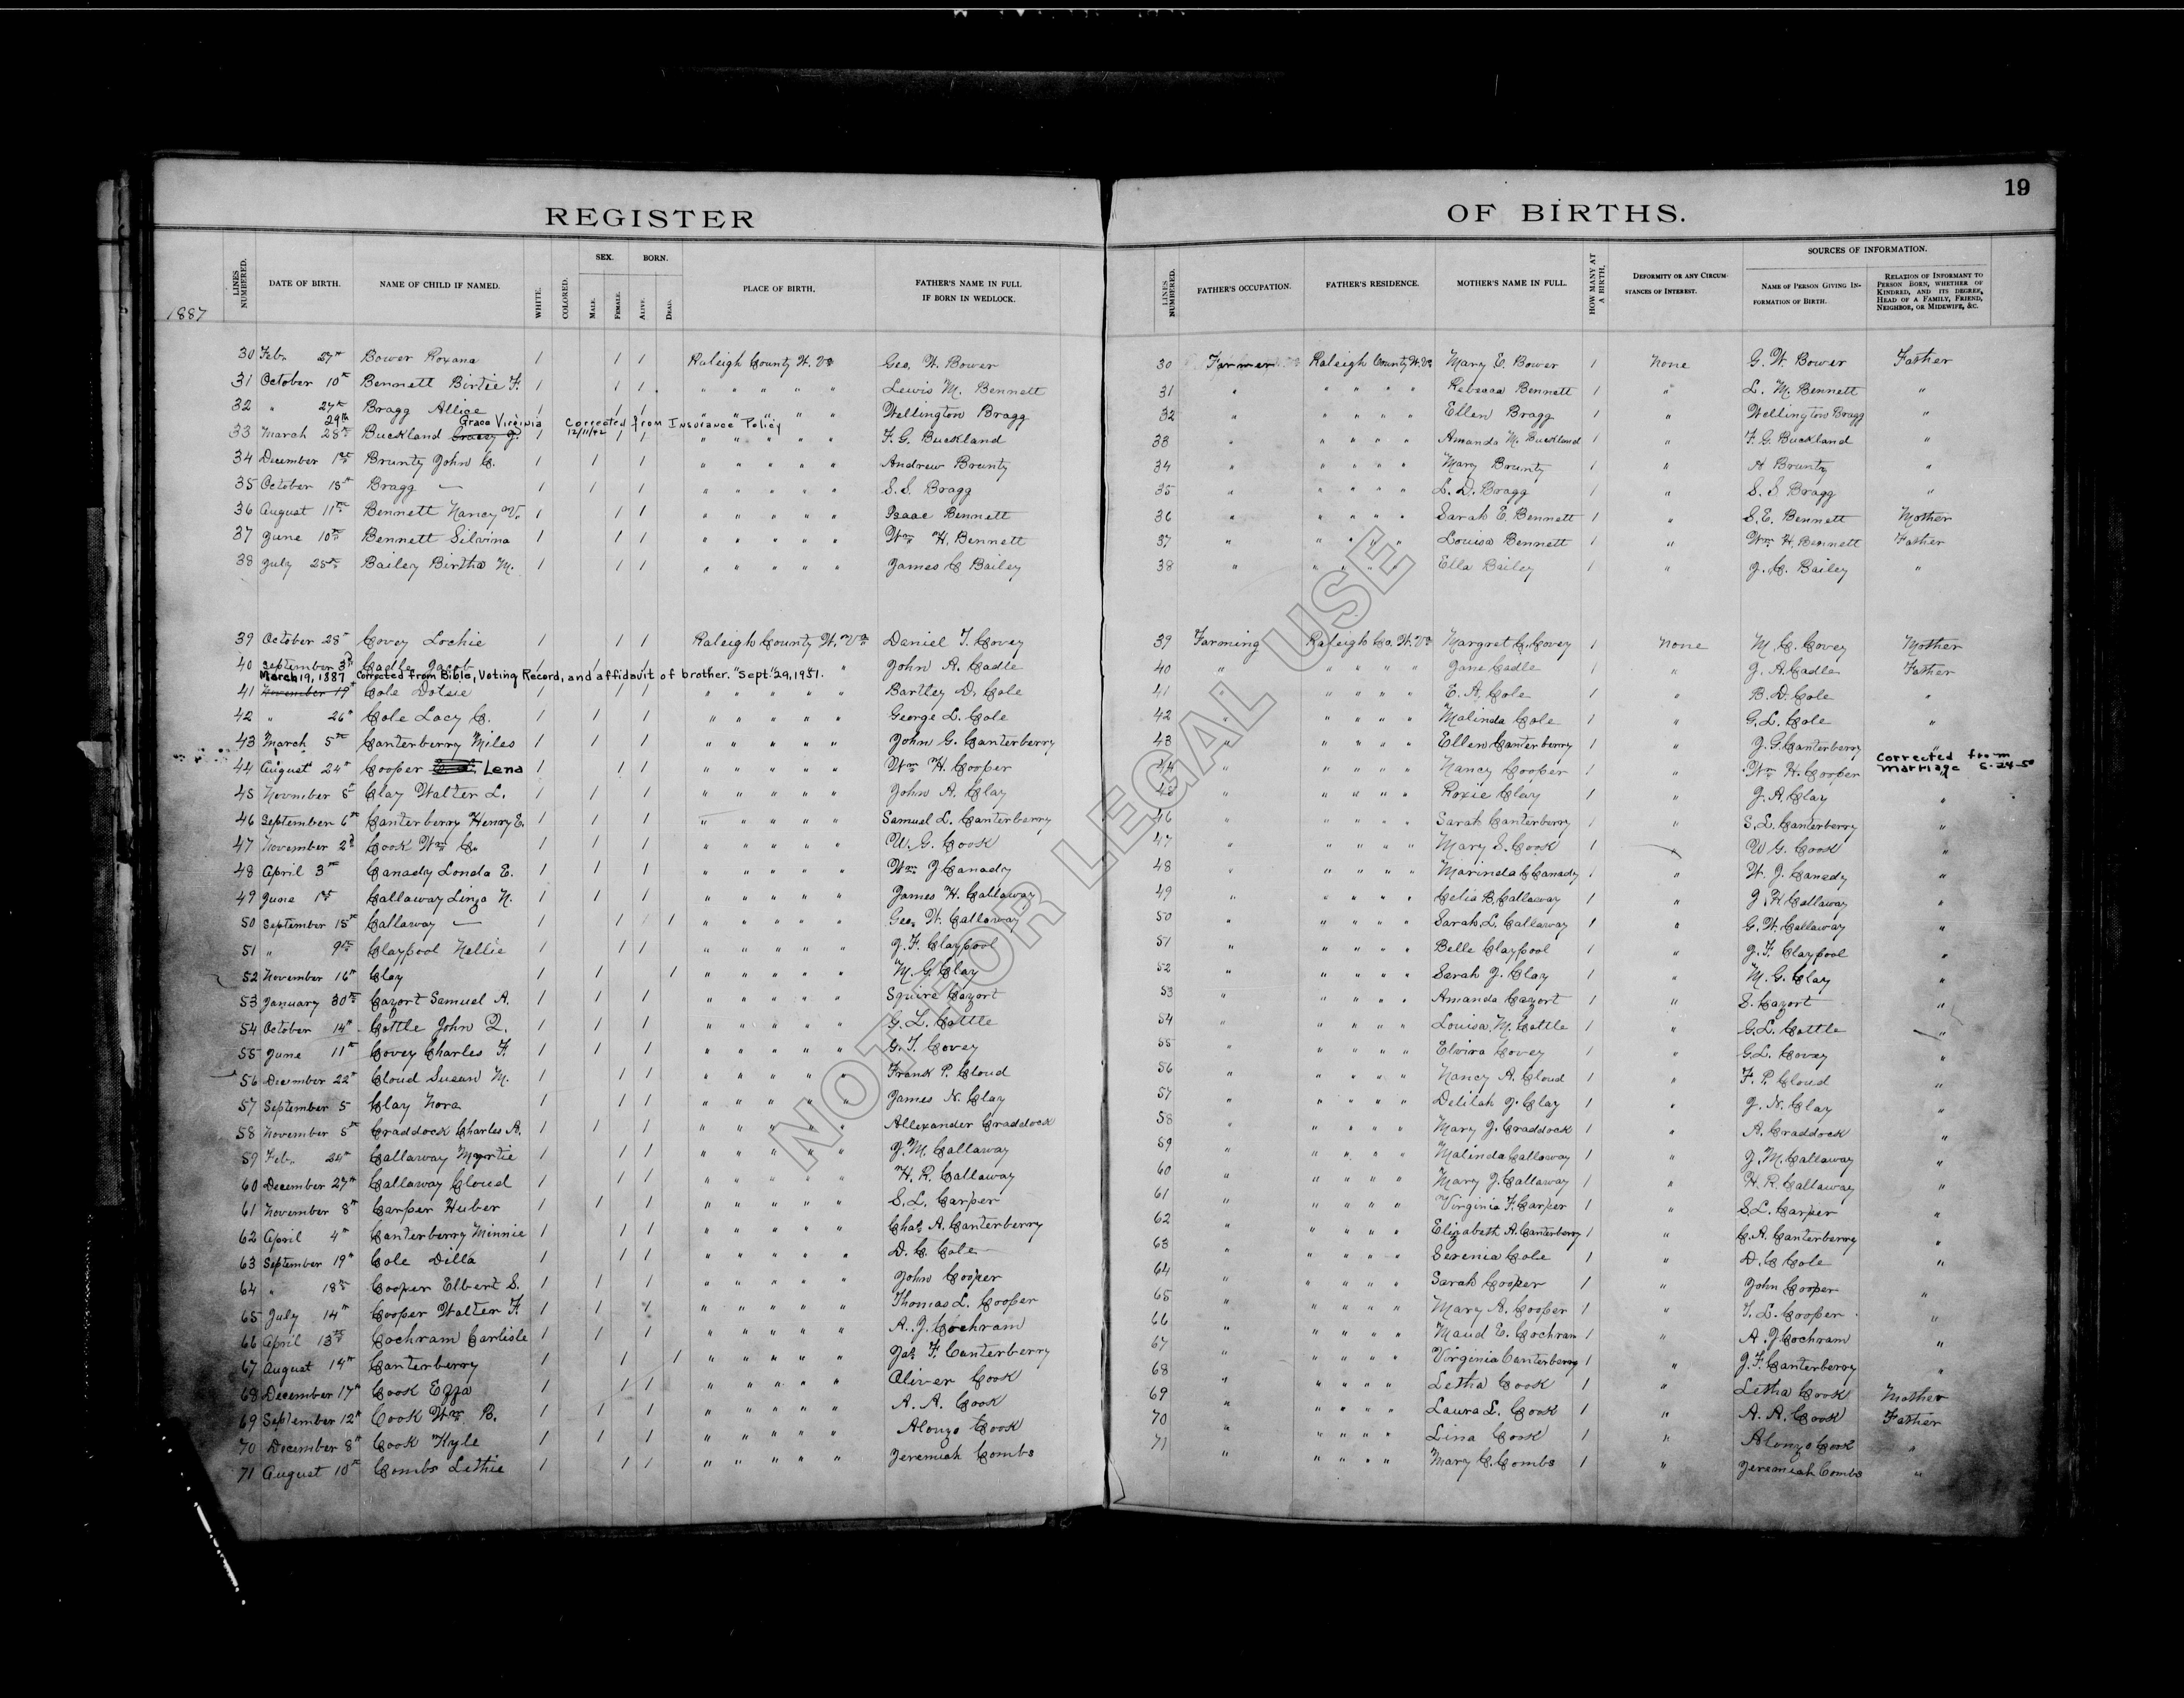 19
REGISTER OF BIRTHS.
1887
LINES NUMBERED. DATE OF BIRTH. NAME OF CHILD IF NAMED. WHITE. COLORED. SEX. MALE. FEMALE. BORN. ALIVE. DEAD. PLACE OF BIRTH. FATHER'S NAME IN FULL IF BORN IN WEDLOCK. LINES NUMBERED. FATHER'S OCCUPATION. FATHER'S RESIDENCE. MOTHER'S NAME IN FULL. HOW MANY AT A BIRTH. DEFORMITY OR ANY CIRCUMSTANCES OF INTEREST. SOURCES OF INFORMATION. NAME OF PERSON GIVING INFORMATION OF BIRTH. RELATION OF INFORMANT TO PERSON BORN, WHETHER OF KINDRED, AND ITS DEGREE, HEAD OF A FAMILY, FRIEND, NEIGHBOR, OR MIDWIFE, &C.
30 Feb. 27th Bower Roxana 1 1 1 Raleigh County W. Va Geo. W. Bower 30 Farmer Raleigh County W. Va Mary E. Bower 1 None G. W. Bower Father
31 October 10th Bennett Birtie F. 1 1 1 " " " " " Lewis M. Bennett 31 " " " " " Rebecca Bennett 1 " L. M. Bennett "
32 " 27th Bragg Allice 1 1 1 " " " " " Wellington Bragg 32 " " " " " Ellen Bragg 1 " Wellington Bragg "
29th Grace Virginia Corrected from Insurance Policy 12/11/42
33 March 28th Buckland Gracy J. 1 1 1 " " " " " F. G. Buckland 33 " " " " " Amanda M. Buckland 1 " F. G. Buckland "
34 December 1st Brunty John C. 1 1 1 " " " " " Andrew Brunty 34 " " " " " Mary Brunty 1 " A Brunty "
35 October 15th Bragg — 1 1 1 " " " " " S. S. Bragg 35 " " " " " L. D. Bragg 1 " S. S Bragg "
36 August 11th Bennett Nancy V. 1 1 1 " " " " " Isaac Bennett 36 " " " " " Sarah E. Bennett 1 " S. E. Bennett Mother
37 June 10th Bennett Silvina 1 1 1 " " " " " Wm H. Bennett 37 " " " " " Louisa Bennett 1 " Wm H. Bennett Father
38 July 25th Bailey Birtha M. 1 1 1 " " " " " James C Bailey 38 " " " " " Ella Bailey 1 " J. C. Bailey "
39 October 28th Covey Lochie 1 1 1 Raleigh County W. Va Daniel T. Covey 39 Farming Raleigh Co. W. Va Margret C. Covey 1 None M. C. Covey Mother
40 September 3d Cadle Jacob 1 1 1 " " John A. Cadle 40 " " " " " Jane Cadle 1 " J. A. Cadle Father
March 19, 1887 Corrected from Bible, Voting Record, and affidavit of brother. "Sept." 29, 1951.
41 November 19th Cole Dolsie 1 1 1 " " " " " Bartley D. Cole 41 " " " " " E. A. Cole 1 " B. D. Cole "
42 " 26th Cole Lacy C. 1 1 1 " " " " " George L. Cole 42 " " " " " Malinda Cole 1 " G. L. Cole "
43 March 5th Canterberry Miles 1 1 1 " " " " " John G. Canterberry 43 " " " " " Ellen Canterberry 1 " J. G. Canterberry "
Corrected from marriage 6-24-50
44 August 24th Cooper Lena 1 1 1 " " " " " Wm H. Cooper 44 " " " " " Nancy Cooper 1 " Wm H. Cooper "
45 November 5th Clay Walter L. 1 1 1 " " " " " John A. Clay 45 " " " " " Roxie Clay 1 " J. A. Clay "
46 September 6th Canterberry Henry E. 1 1 1 " " " " " Samuel L. Canterberry 46 " " " " " Sarah Canterberry 1 " S. L. Canterberry "
47 November 2d Cook Wm C. 1 1 1 " " " " " U. G. Cook 47 " " " " " Mary S. Cook 1 " U G. Cook "
48 April 3rd Canady Londa E. 1 1 1 " " " " " Wm J Canady 48 " " " " " Marinda C Canady 1 " W. J. Canady "
49 June 1st Callaway Linza N. 1 1 1 " " " " " James H. Callaway 49 " " " " " Celia B. Callaway 1 " J. H Callaway "
50 September 15th Callaway — 1 1 1 " " " " " Geo. W. Callaway 50 " " " " " Sarah L. Callaway 1 " G. W. Callaway "
51 " 9th Claypool Nellie 1 1 1 " " " " " J. F. Claypool 51 " " " " " Belle Claypool 1 " J. F. Claypool "
52 November 16th Clay 1 1 1 " " " " " M. G. Clay 52 " " " " " Sarah J. Clay 1 " M. G. Clay "
53 January 30th Cazort Samuel A. 1 1 1 " " " " " Squire Cazort 53 " " " " " Amanda Cazort 1 " S. Cazort "
54 October 14th Cottle John Q. 1 1 1 " " " " " G. L. Cottle 54 " " " " " Louisa M. Cottle 1 " G. L. Cottle "
55 June 11th Covey Charles F. 1 1 1 " " " " " G. T. Covey 55 " " " " " Elvira Covey 1 " G. L. Covey "
56 December 22d Cloud Susan M. 1 1 1 " " " " " Frank P. Cloud 56 " " " " " Nancy A. Cloud 1 " F. P. Cloud "
57 September 5 Clay Nora 1 1 1 " " " " " James N. Clay 57 " " " " " Delilah J. Clay 1 " J. N. Clay "
58 November 5th Craddock Charles A. 1 1 1 " " " " " Allexander Craddock 58 " " " " " Mary J. Craddock 1 " A. Craddock "
59 Feb. 24th Callaway Myrtie 1 1 1 " " " " " J. M. Callaway 59 " " " " " Malinda Callaway 1 " J. M. Callaway "
60 December 27th Callaway Cloud 1 1 1 " " " " " H. R. Callaway 60 " " " " " Mary J. Callaway 1 " H. R. Callaway "
61 November 8th Carper Huber 1 1 1 " " " " " S. L. Carper 61 " " " " " Virginia F. Carper 1 " S. L. Carper "
62 April 4th Canterberry Minnie 1 1 1 " " " " " Chas. A. Canterberry 62 " " " " " Elizabeth A. Canterberry 1 " C. A. Canterberry "
63 September 19th Cole Dilla 1 1 1 " " " " " D. C. Cole 63 " " " " " Serenia Cole 1 " D. C Cole "
64 " 18th Cooper Elbert S. 1 1 1 " " " " " John Cooper 64 " " " " " Sarah Cooper 1 " John Cooper "
65 July 14th Cooper Walter F. 1 1 1 " " " " " Thomas L. Cooper 65 " " " " " Mary A. Cooper 1 " T. L. Cooper "
66 April 13th Cochram Carlisle 1 1 1 " " " " " A. J. Cochram 66 " " " " " Maud E. Cochram 1 " A. J Cochram "
67 August 14th Canterberry 1 1 1 " " " " " Jas. F. Canterberry 67 " " " " " Virginia Canterberry 1 " J. F. Canterberry "
68 December 17th Cook Ezza 1 1 1 " " " " " Oliver Cook 68 " " " " " Letha Cook 1 " Letha Cook Mother
69 September 12th Cook Wm. B. 1 1 1 " " " " " A. A. Cook 69 " " " " " Laura L. Cook 1 " A. A. Cook Father
70 December 8th Cook Kyle 1 1 1 " " " " " Alonzo Cook 70 " " " " " Lina Cook 1 " Alonzo Cook "
71 August 10th Combs Lethie 1 1 1 " " " " " Jeremiah Combs 71 " " " " " Mary C. Combs 1 " Jeremiah Combs "
NOT FOR LEGAL USE